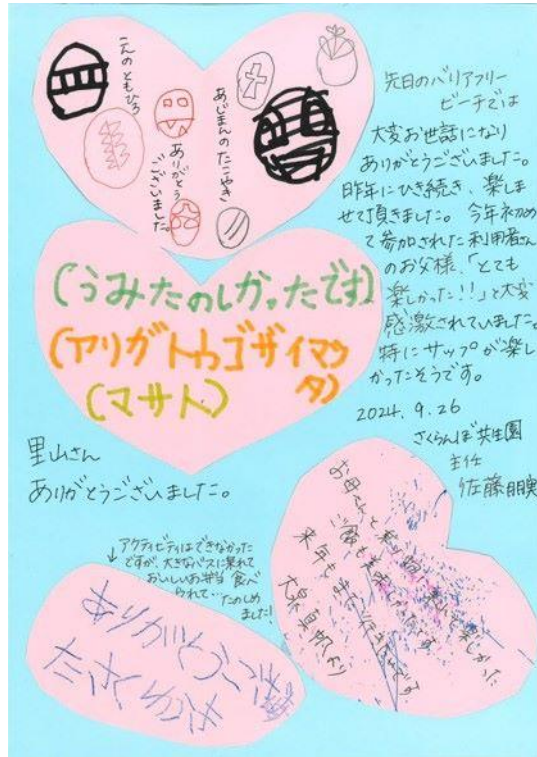 こんのともひろ
あじまんのたこやき
ありがとう
ございました。
先日のバリアフリー
ビーチでは
大変お世話になり
ありがとうございました。
昨年にひき続き、楽しま
せて頂きました。今年初め
て参加された利用者さん
のお父様、「とても
楽しかった!!」と大変
感激されていました。
特にサップが楽し
かったそうです。
2024.9.26
さくらんぼ共生園
主任
佐藤朋実
(うみたのしかったです)
(アリガトウゴザイマシ
タ)
(マサト)
里山さん
ありがとうございました。
↓アクティビティはできなかった
ですが、大きなバスに乗れて
おいしいお弁当食べ
られて…
たのしめ
ました!
ありがとうござ
お母さんと
楽しかった
来年もまた行きたいです。